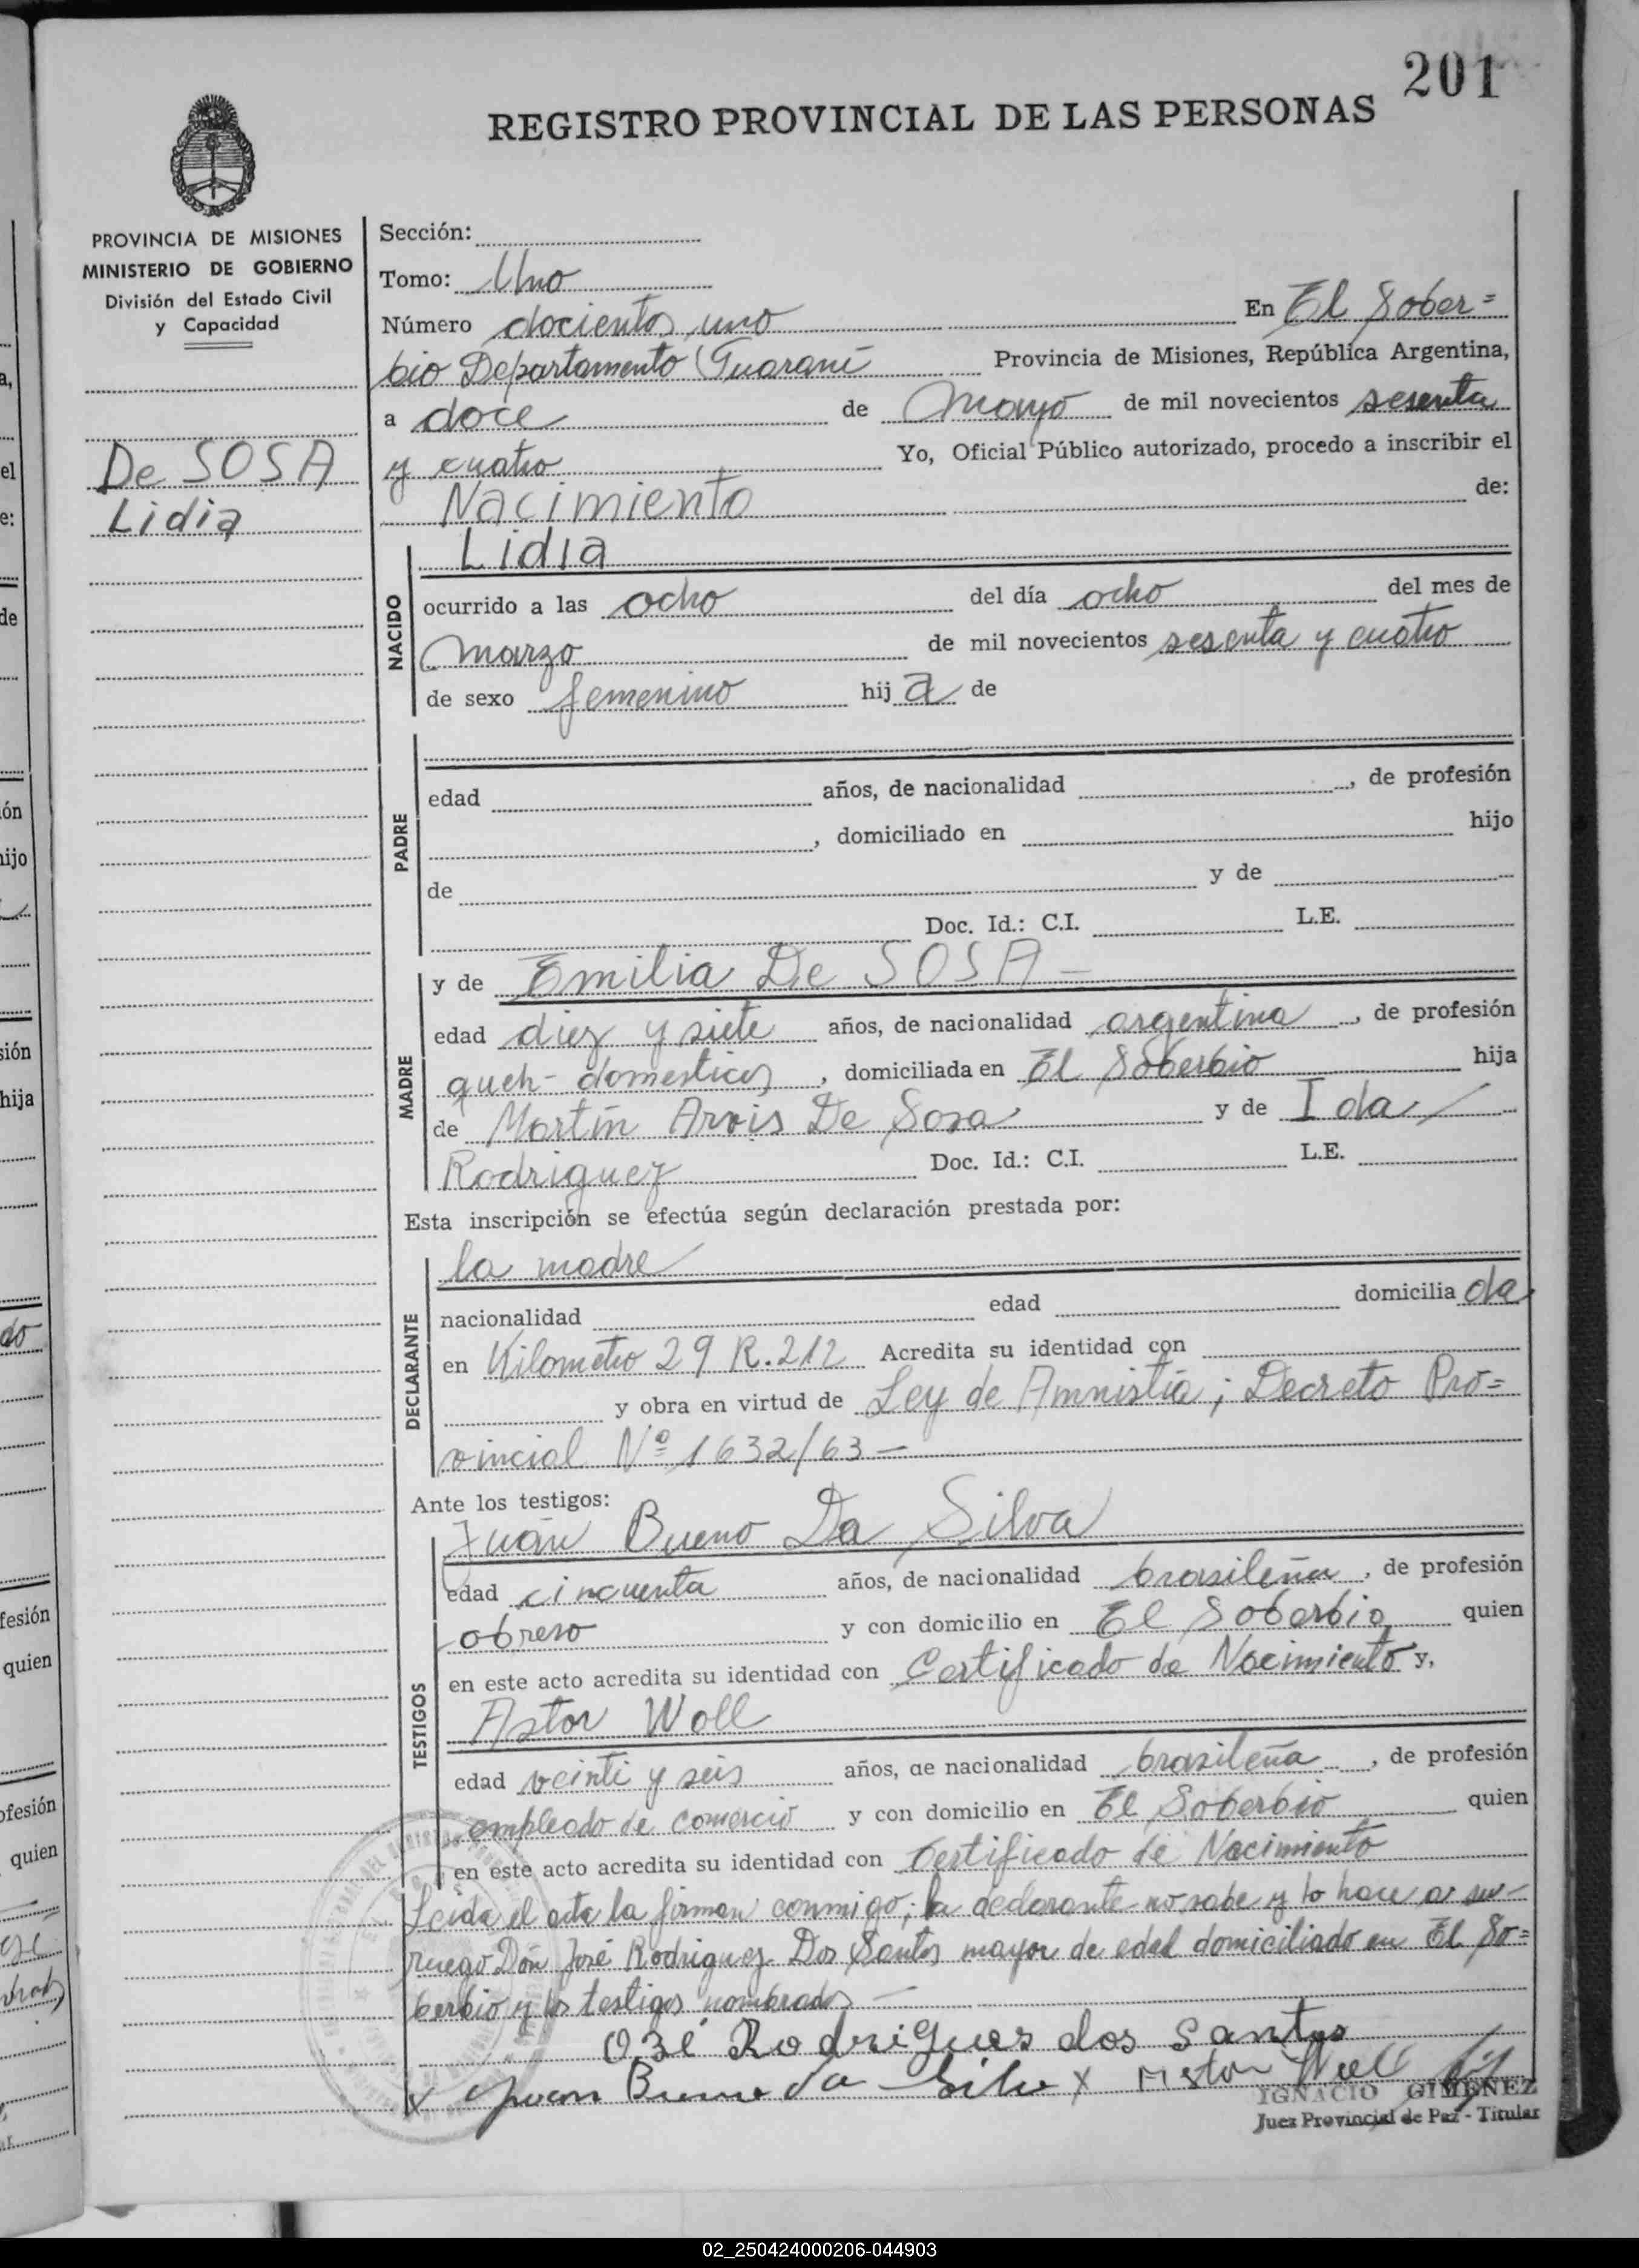 201
REGISTRO PROVINCIAL DE LAS PERSONAS
PROVINCIA DE MISIONES
MINISTERIO DE GOBIERNO
División del Estado Civil
y Capacidad
De SOSA
Lidia
Sección:
Tomo: Uno
Número docientos uno En El Sober=
bio Departamento Guaraní Provincia de Misiones, República Argentina,
a doce de Mayo de mil novecientos sesenta
y cuatro Yo, Oficial Público autorizado, procedo a inscribir el
Nacimiento de:
NACIDO
Lidia
ocurrido a las ocho del día ocho del mes de
Marzo de mil novecientos sesenta y cuatro
de sexo femenino hija de
PADRE
edad años, de nacionalidad , de profesión
, domiciliado en hijo
de y de
Doc. Id.: C.I. L.E.
MADRE
y de Emilia De SOSA -
edad diez y siete años, de nacionalidad argentina , de profesión
queh- domesticos , domiciliada en El Soberbio hija
de Martín Arvis De Sosa y de Ida
Rodriguez Doc. Id.: C.I. L.E.
Esta inscripción se efectúa según declaración prestada por:
DECLARANTE
la madre
nacionalidad edad domiciliada
en Kilometro 29 R.212 Acredita su identidad con
y obra en virtud de Ley de Amnistía; Decreto Pro=
vincial Nº 1632/63 -
Ante los testigos:
TESTIGOS
Juan Bueno Da Silva
edad cincuenta años, de nacionalidad brasileña , de profesión
obrero y con domicilio en El Soberbio quien
en este acto acredita su identidad con Certificado de Nacimiento y,
Astor Woll
edad veinti y seis años, de nacionalidad brasileña , de profesión
empleado de comercio y con domicilio en El Soberbio quien
en este acto acredita su identidad con Certificado de Nacimiento
Leida el acta la firman conmigo; la declarante no sabe y lo hace a su
ruego Don José Rodriguez Dos Santos mayor de edad domiciliado en El So=
berbio y los testigos nombrados -
Ozé Rodrigues dos Santos
x Juan Bueno da Silva x Astor Woll
IGNACIO GIMENEZ
Juez Provincial de Paz - Titular
02_250424000206-044903